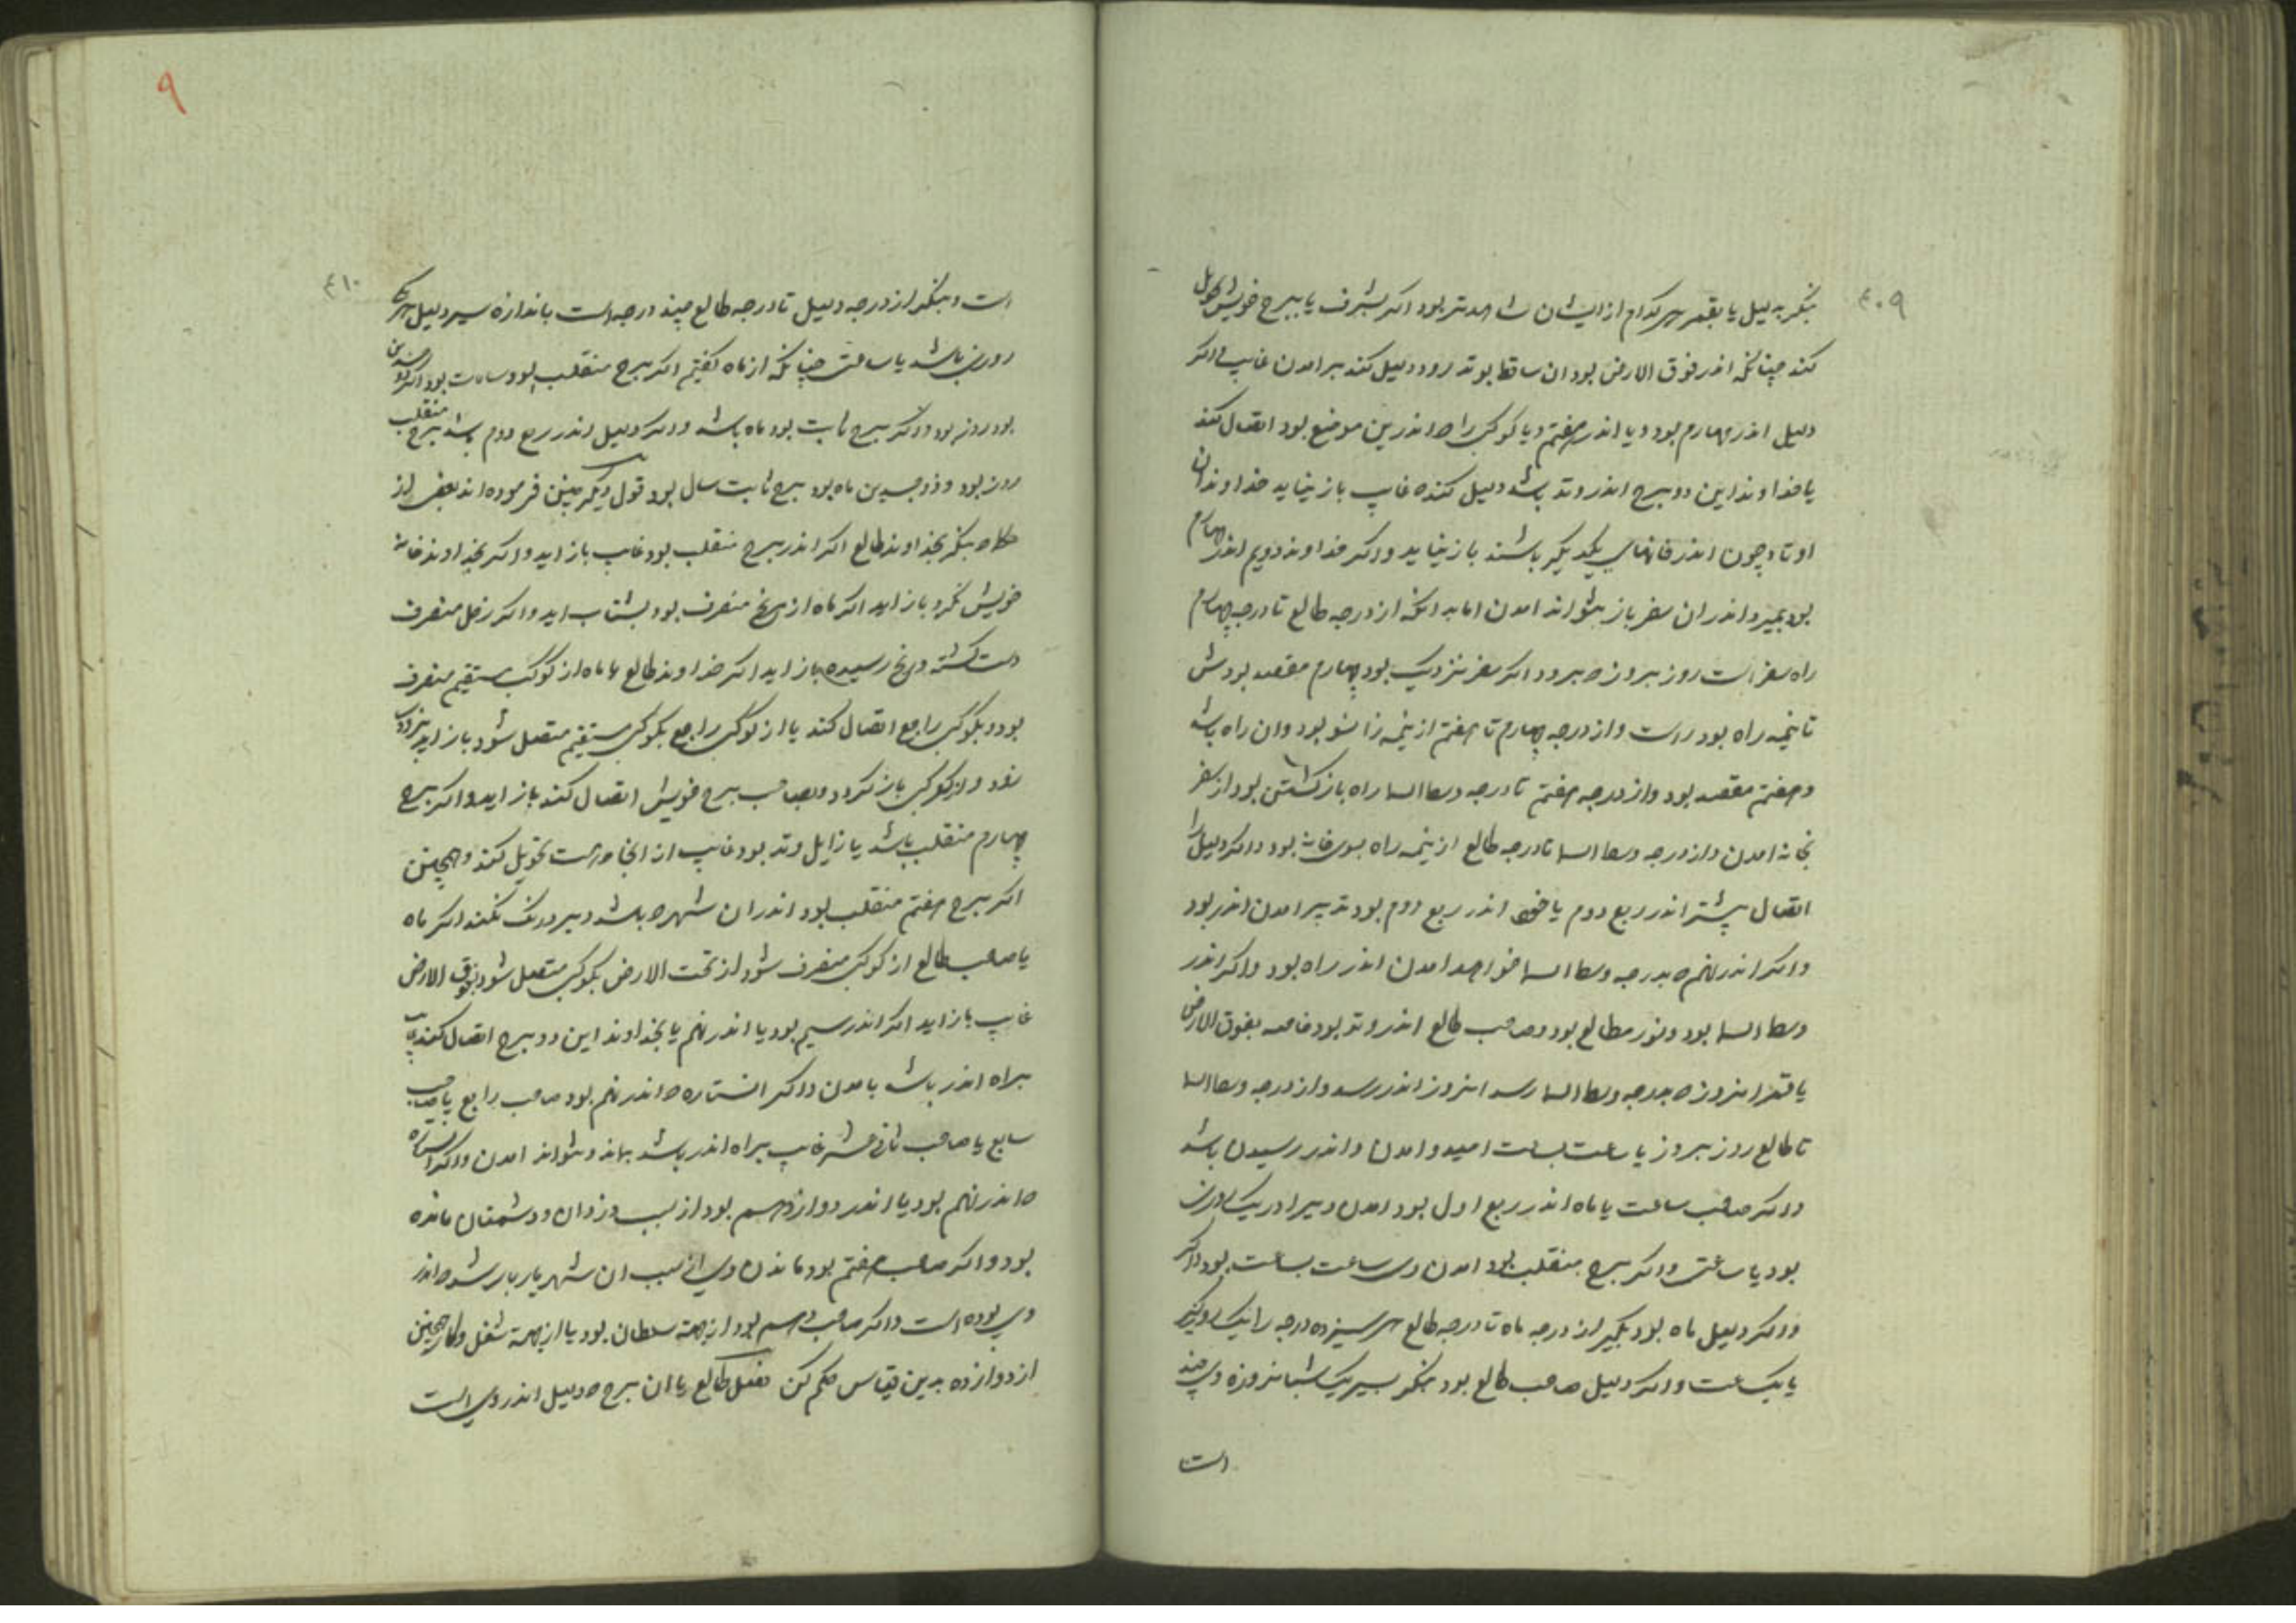 ٤٠٩
بنگر بدلیل یا بقمر هر کدام از ایشان شاهدتر بود اکر بشرف یا ببرج خویش تحویل
کند چنانکه اندر فوق الارض بود ان ساقط بوتد رود دلیل کند بر امدن غایب و اکر
دلیل اندر چهارم بود و یا اندر هفتم و یا کوکبی را ه اندرین موضع بود اتصال کند
یا خداوند این دو برج اندر وتد باشد دلیل کند ه غایب باز نیاید خداوندان
اوتاد چون اندر خانهای یکدیکر باشند باز نیاید و اکر خداوند دویم اندر چهارم
بود بمیرد اندر ان سفر باز نتواند امدن اما بدانکه از درجه طالع تا درجه چهارم
راه سفر است روز بروز ه میرود اکر سفر نزدیک بود چهارم مقصد بودش
تا نیمه راه بود راست و از درجه چهارم تا هفتم از نیمه زانسو بود و ان راه باشد
و هفتم مقصد بود و از درجه هفتم تا درجه وسط السما راه باز کشتن بود از سفر
بخانه امدن و از درجه وسط السما تا درجه طالع از نیمه راه بسوی خانه بود و اکر دلیل را
اتصال پیشتر اندر ربع دوم یا خود اندر ربع دوم بود تدبیر امدن اندر بود
و اکر اندر نهم ه بدرجه وسط السما خواهد امدن اندر راه بود و اکر اندر
وسط السما بود و نور مطالع بود و صاحب طالع اندر وتد بود خاصه بفوق الارض
یا قمر انروز ه بدرجه وسط السما رسد انروز اندر رسد و از درجه وسط السما
تا طالع روز بروز یا ساعت بساعت امید و امدن و اندر رسیدن باشد
و اکر صاحب ساعت یا ماه اندر ربع اول بود امدن ویرا در یک روزن
بود یا ساعتی و اکر برج منقلب بود امدن وی ساعت بساعت بود و اکر
و اکر دلیل ماه بود بکیر از درجه ماه تا درجه طالع هر سیزده درجه را یک روز کیر
یا یک ساعت و اکر دلیل صاحب طالع بود بنکر بسیر یک شبانروزه وی چند
است
٩
٤١٠
است و بنکر از درجه دلیل تا درجه طالع چند درجه است باندازه سیر دلیل هر یکی
روزی باشد یا ساعتی چنانکه از ماه کفتیم اکر برج منقلب بود ساعات بود اکر ذو جسدین
بود روز بود و اکر برج ثابت بود ماه باشد و اکر دلیل اندر ربع دوم باشد برج منقلب
روز بود و ذو جسدین ماه بود برج ثابت سال بود قول دیکر چنین فرموده اند بعضی از
حکما ه بنکر بخداوند طالع اکر اندر برج منقلب بود غایب باز اید و اکر بخداوند خانه
خویش نکرد باز اید اکر ماه از مریخ منصرف بود بشتاب اید و اکر زحل منصرف
دست کشته و رنج رسیده باز اید اکر خداوند طالع یا ماه از کوکب مستقیم منصرف
بود و بکوکبی راجع اتصال کند یا از کوکبی راجع بکوکبی مستقیم متصل شود باز اید بزودی
شود و از کوکبی باز کردد و بصاحب برج خویش اتصال کند باز اید و اکر برج
چهارم منقلب باشد یا زایل وتد بود غایب از انجا ه هست تحویل کند و همچنین
اکر برج هفتم منقلب بود اندر ان شهر ه باشد دیر درنک نکند اکر ماه
یا صاحب طالع از کوکبی منصرف شود از تحت الارض بکوکبی متصل شود بفوق الارض
غایب باز اید اکر اندر سیم بود یا اندر نهم یا بخداوند این دو برج اتصال کند غایب
براه اندر باشد بامدن و اکر انستاره ه اندر نهم بود صاحب رابع یا صاحب
سابع یا صاحب ثانی عشر غایب براه اندر باشد بماند و نتواند امدن و اکر انستاره
ه اندر نهم بود یا اندر دوازدهم بود از سبب دزدان و دشمنان مانده
بود و اکر صاحب هفتم بود ماندن وی از سبب ان شهر یار بار شد ه اندر
وی بوده است و اکر صاحب دهم بود از جهته سلطان بود یا از جهته شغل و کار همچنین
از دوازده بدین قیاس حکم کن فصل طالع یا ان برج ه دلیل اندر وی است